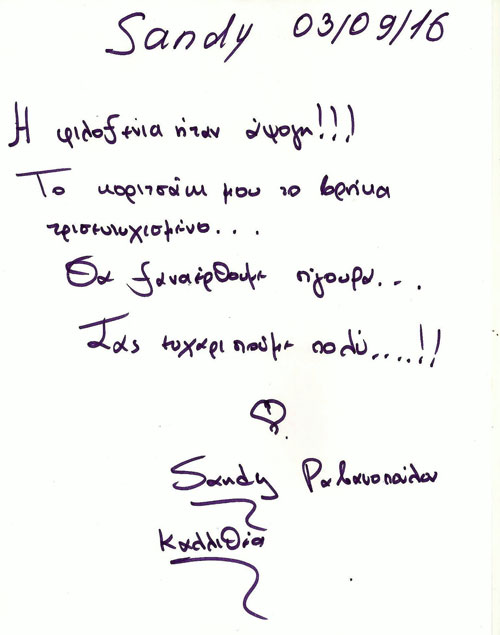 Sandy 03/09/16
Η φιλοξενία ήταν άψογη!!!
Το κοριτσάκι μου το βρήκα
τρισευτυχισμένο...
Θα ξαναέρθουμε σίγουρα...
Σας ευχαριστούμε πολύ....!!
Sandy
Καλλιθέα